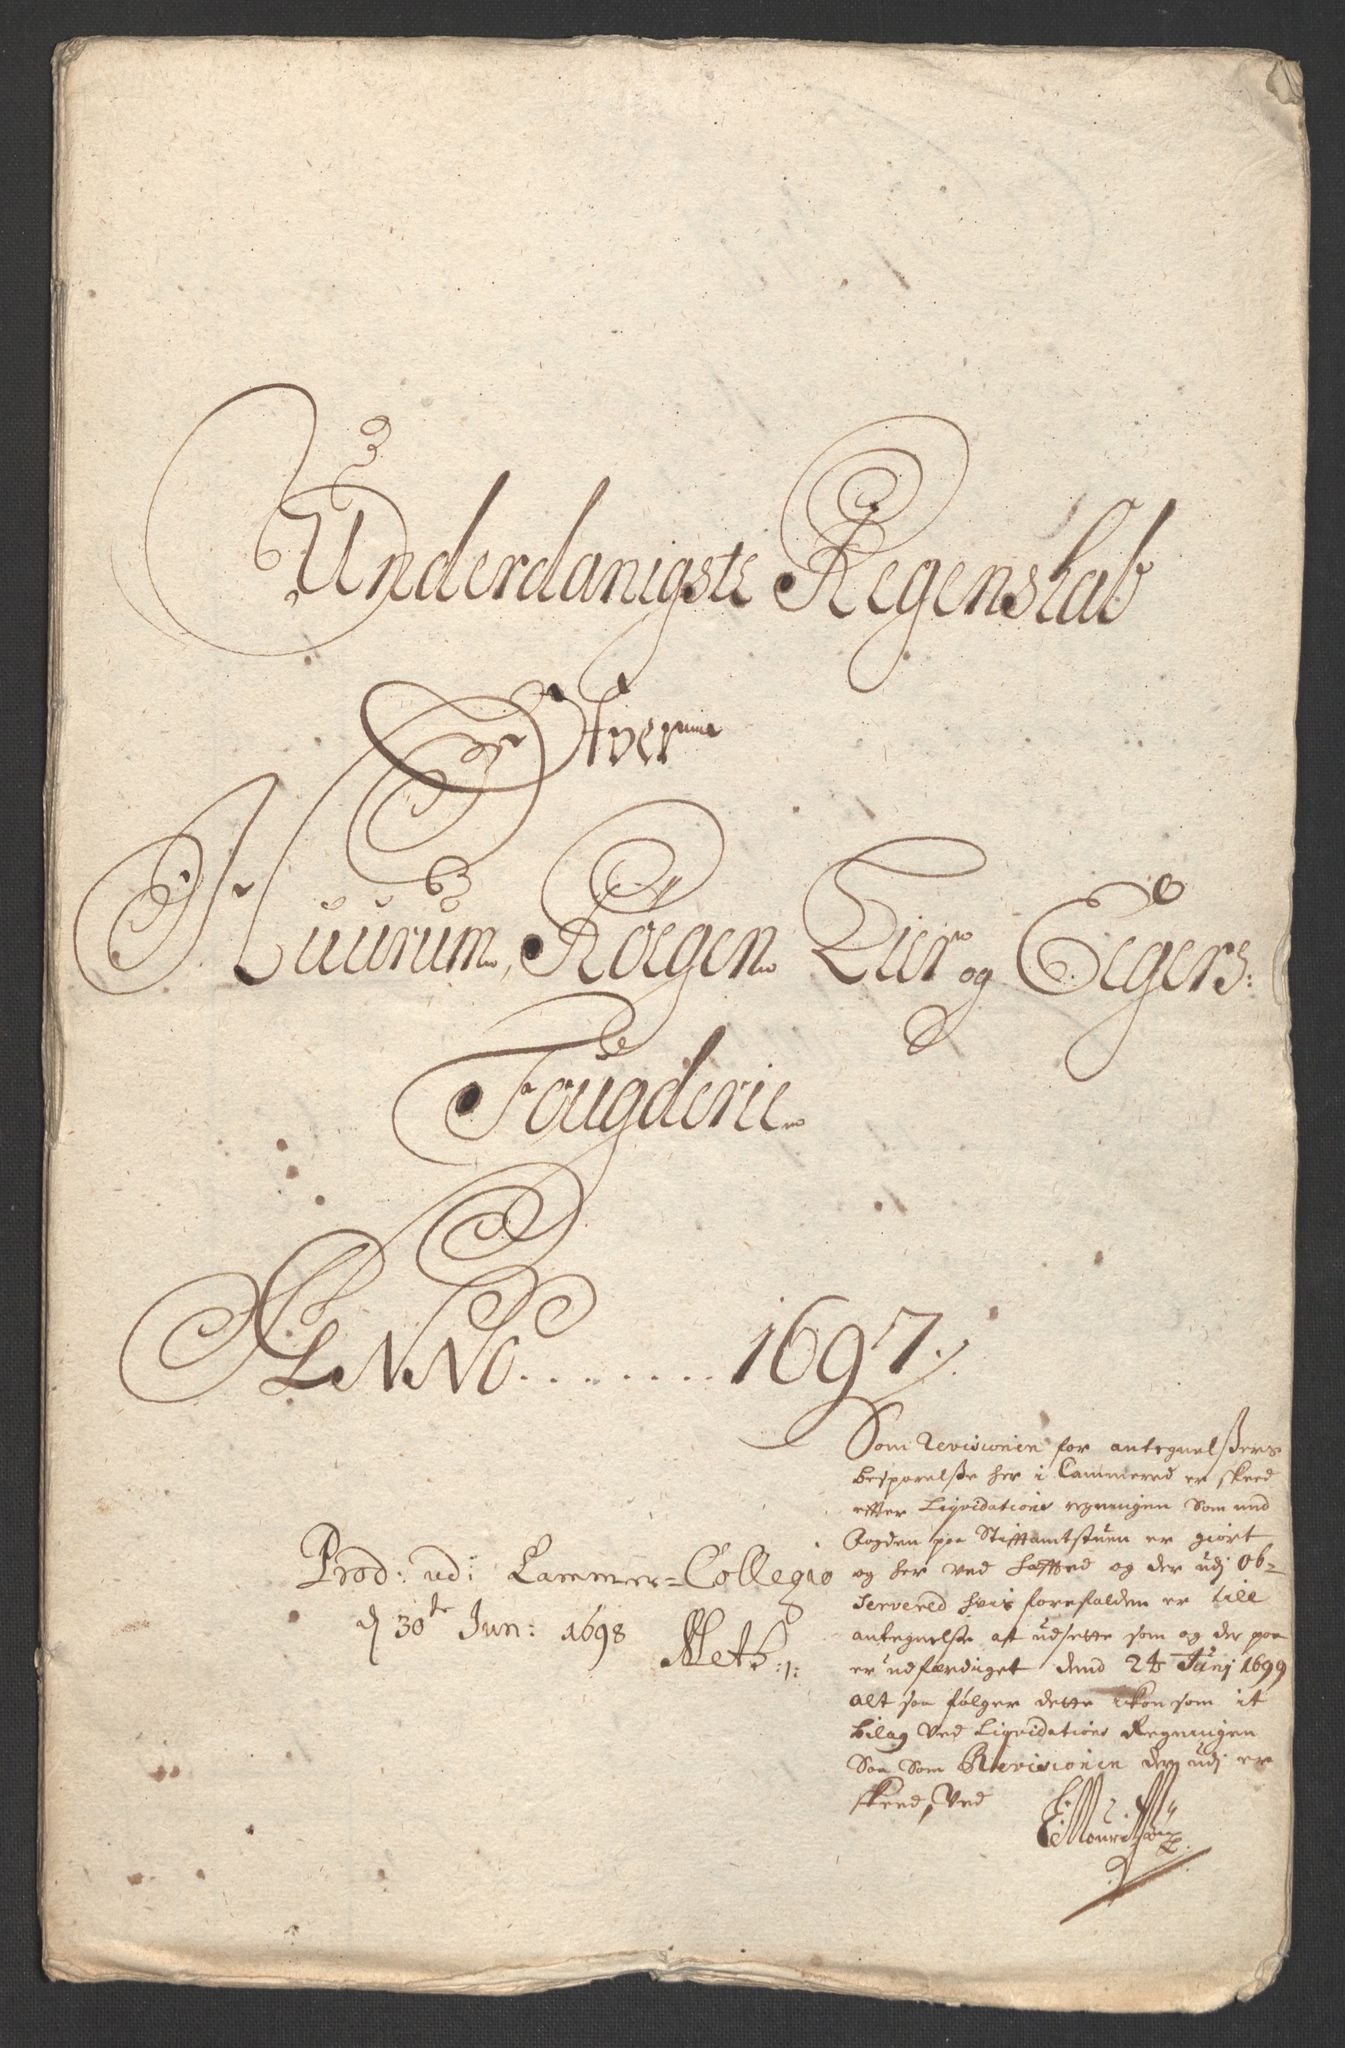 Underdanigste Regenskab
Ofver
Huurum, Röegen Lier og Eegers:
Fougderie
ANNO........1697.
Prod: udi Cammer=Collegio
d 30te Jun: 1698
Meth:
Som Revisionen for antegnelßers
besparelße her i Cammered er skeed
effter Liqvidations regningen som med
Fogden paa Stifftamtstuen er giort
og her ved hæffted og der udj ob=
servered hvis forefalden er till
antegnelße at udsette som og der paa
er udfærdiget dend 24 Junj 1699
alt saa følger dette ickon som it
bilag ved Liqvidations Regningen
Saa som Revisionen der udj er
skeed, Ved